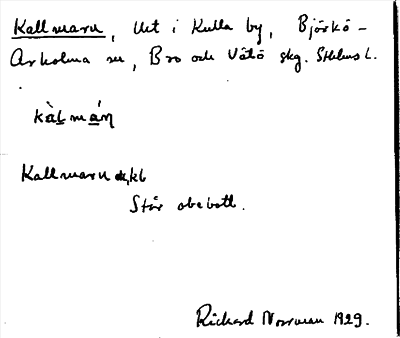 Kallmaru, Utt i Kulla by, Björkö-
Arholma sn, Bro och Vätö skg. Sthlms l.
kàlmán
Kallmaru
Står obebott.
Richard Norrman 1929.